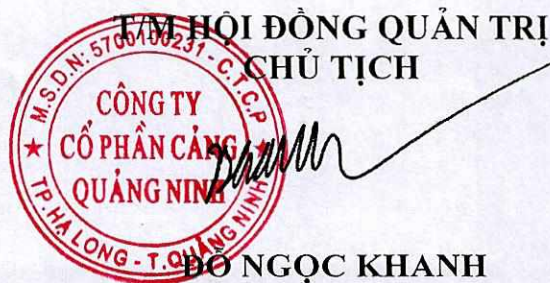 T/M HỘI ĐỒNG QUẢN TRỊ
CHỦ TỊCH
M.S.D.N: 5700100231 - C.T.C.P
CÔNG TY
CỔ PHẦN CẢNG
QUẢNG NINH
TP. HẠ LONG - T. QUẢNG NINH
ĐỖ NGỌC KHANH